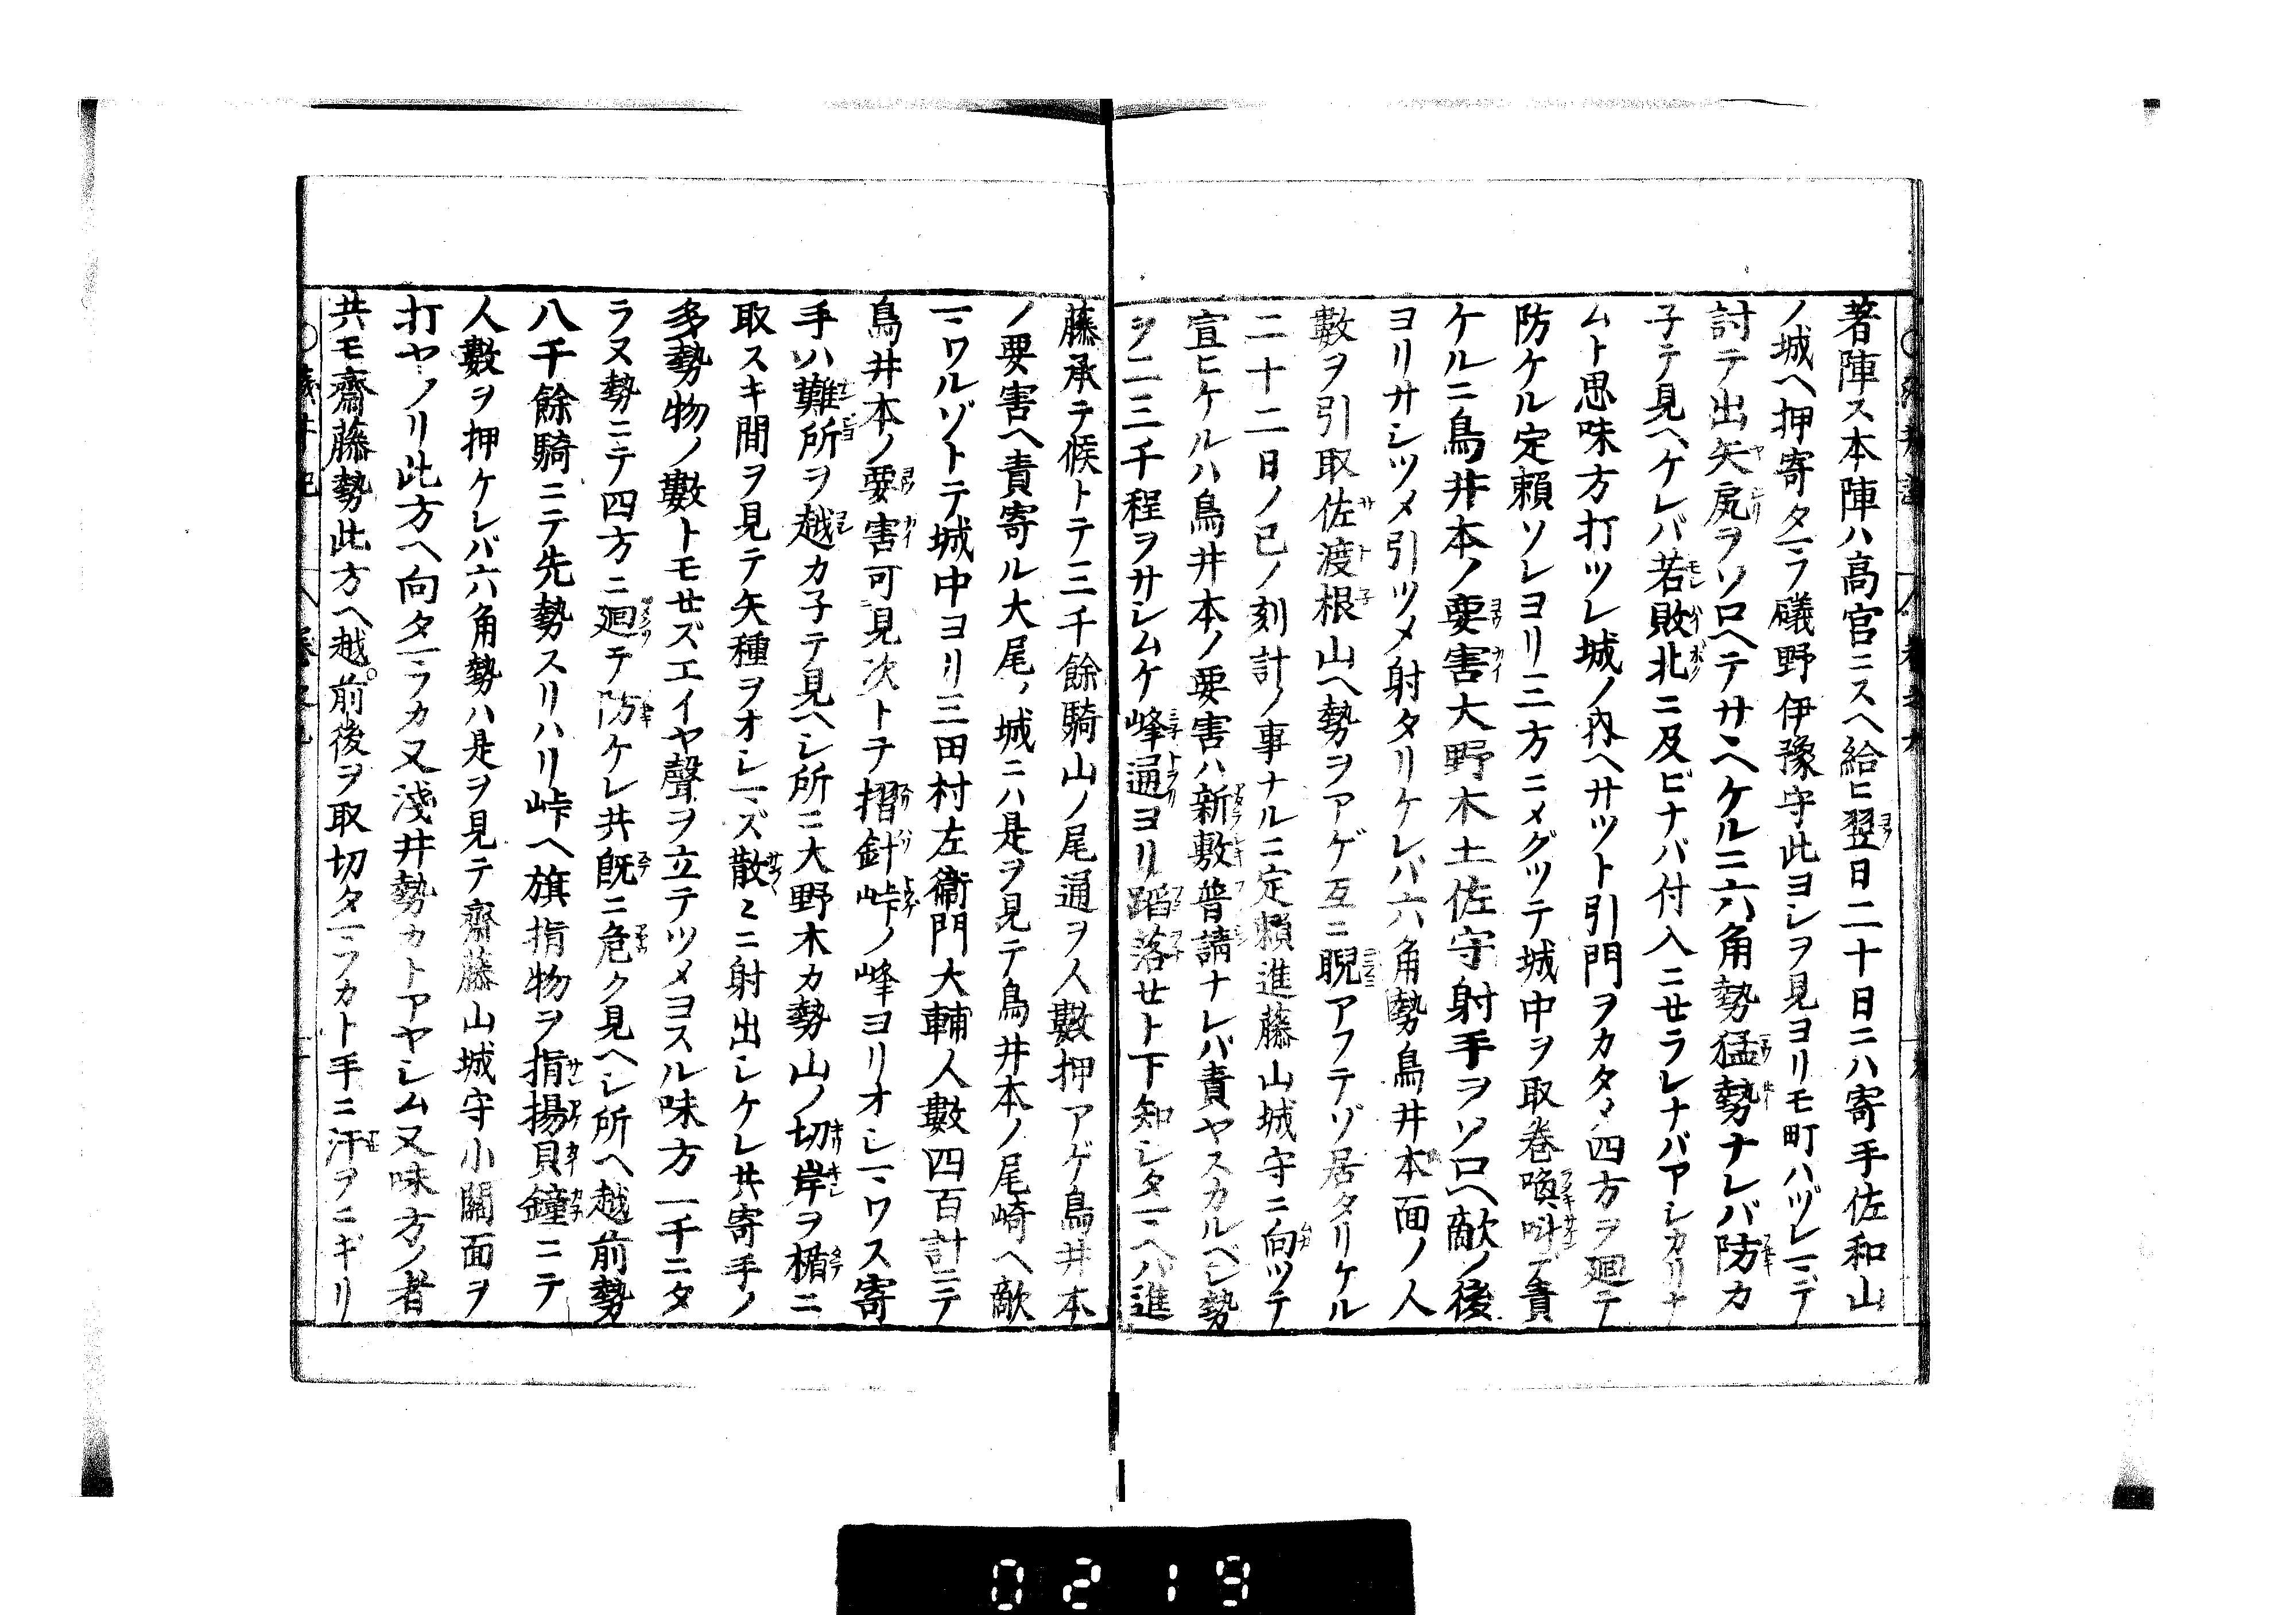 著陣ス本陣ハ高宮ニスヘ給ヒ翌日二十日ニハ寄手佐和山
ノ城ヘ押寄タマフ礒野伊豫守此ヨシヲ見ヨリモ町ハヅレマデ
討テ出矢尻ヲソロヘテサヽヘケルニ六角勢猛勢ナレバ防カ
子テ見ヘケレバ若敗北ニ及ビナバ付入ニセラレナバアシカリナ
ムト思味方打ツレ城ノ内ヘサツト引門ヲカタメ四方ヲ廻テ
防ケル定頼ソレヨリ三方ニメグツテ城中ヲ取巻喚叫デ責
ケルニ鳥井本ノ要害大野木土佐守射手ヲソロヘ敵ノ後
ヨリサシツメ引ツメ射タリケレバ六角勢鳥井本面ノ人
數ヲ引取佐渡根山ヘ勢ヲアゲ互ニ睨アフテゾ居タリケル
二十二日ノ巳ノ刻計ノ事ナルニ定頼進藤山城守ニ向ツテ
宣ヒケルハ鳥井本ノ要害ハ新敷普請ナレバ責ヤスカルベシ勢
ヲ二三千程ヲサシムケ峰通ヨリ蹈落セト下知シタマヘバ進
藤承テ候トテ三千餘騎山ノ尾通ヲ人數押アゲ鳥井本
ノ要害ヘ責寄ル大尾ノ城ニハ是ヲ見テ鳥井本ノ尾崎ヘ敵
マワルゾトテ城中ヨリ三田村左衞門大輔人數四百計ニテ
鳥井本ノ要害可見次トテ摺針峠ノ峰ヨリオシマワス寄
手ハ難所ヲ越カ子テ見ヘシ所ニ大野木カ勢山ノ切岸ヲ楯ニ
取スキ間ヲ見テ矢種ヲオシマズ散〻ニ射出シケレ共寄手ノ
多勢物ノ數トモセズエイヤ聲ヲ立テツメヨスル味方一千ニタ
ラヌ勢ニテ四方ニ廻テ防ケレ共既ニ危ク見ヘシ所ヘ越前勢
八千餘騎ニテ先勢スリハリ峠ヘ旗指物ヲ指揚貝鐘ニテ
人數ヲ押ケレバ六角勢ハ是ヲ見テ齋藤山城守小關面ヲ
打ヤノリ此方ヘ向タマフカ又淺井勢カトアヤシム又味方ノ者
共モ齋藤勢此方ヘ越。前後ヲ取切タマフカト手ニ汗ヲニギリ
0219